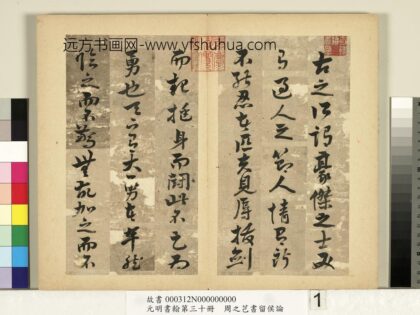 远方书画网-www.yfshuhua.com
古之所謂豪傑之士必
有過人之節人情有所
不能忍者匹夫見辱拔劍
而起挺身而鬪此不足為
勇也天下有大勇者卒然
臨之而不驚無故加之而不
故書 000312N000000000
元明書翰第三十冊 周之芑書留侯論
1